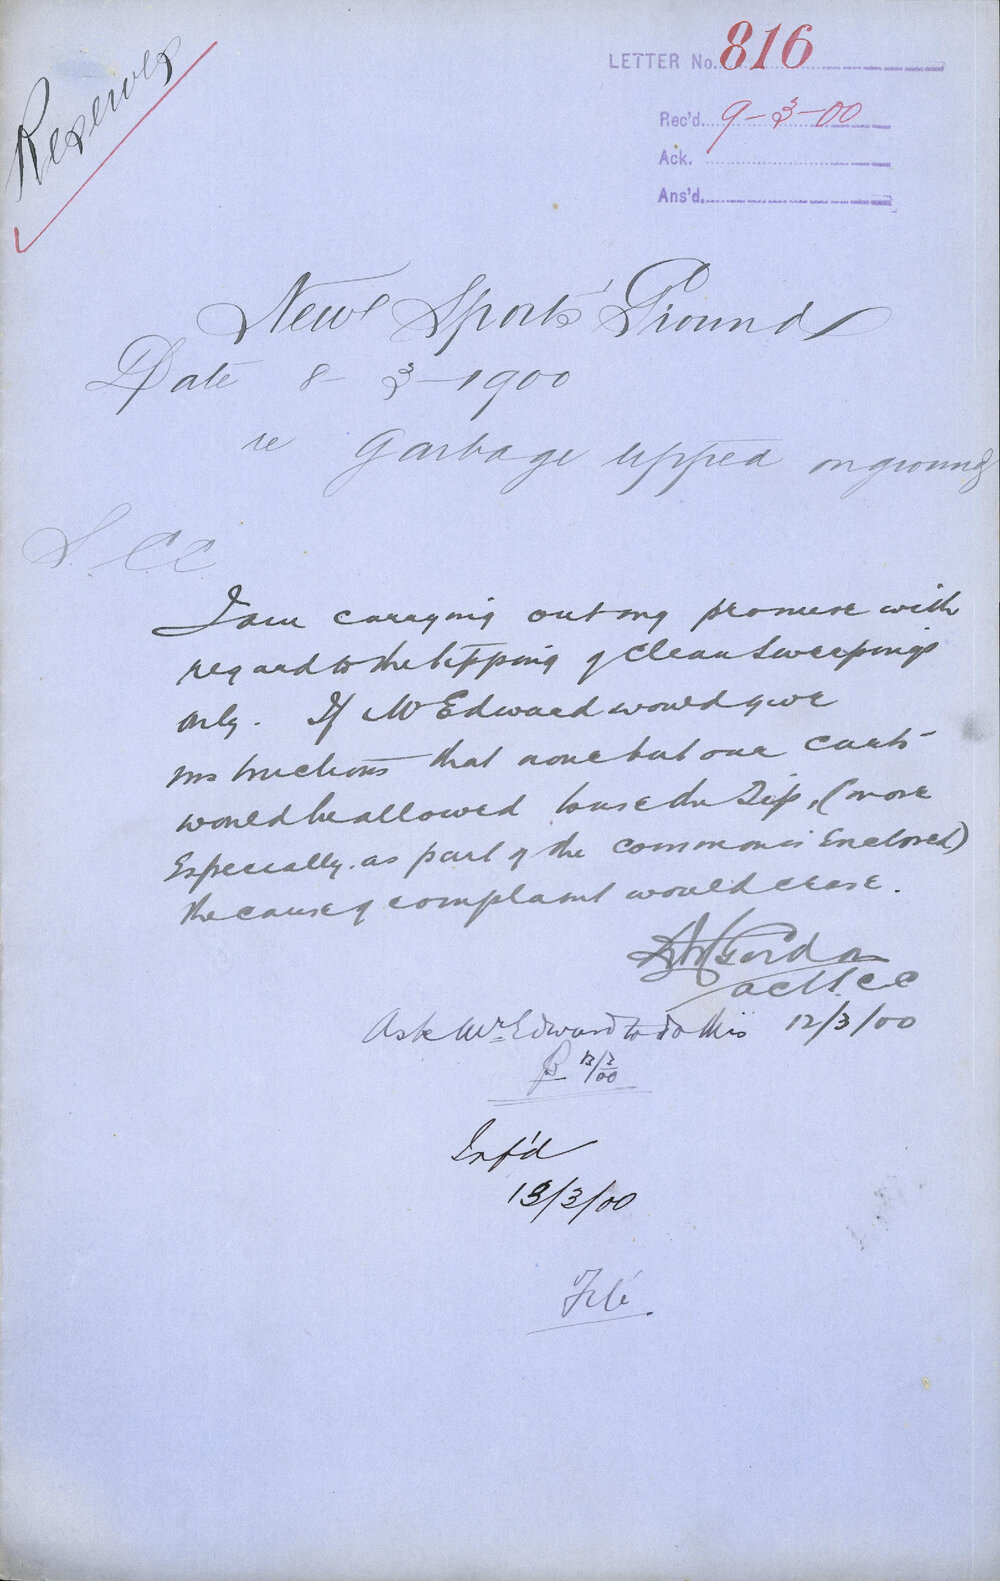 Reserves
LETTER No. 816
Rec'd. 9-3-00
Ack.
Ans'd.
New Sports' Ground
Date 8-3-1900
re Garbage tipped on ground
S. C C
I am carrying out my promise with
regard to the tipping of clean sweepings
only. If Mr Edward would give
instructions that none but our carts
would be allowed to use the Tip, (more
Especially as part of the common is Enclosed)
the cause of complaint would cease.
Gordon
12/3/00
Ask Mr Edward to do this
13/3/00
Inf'd
13/3/00
File.